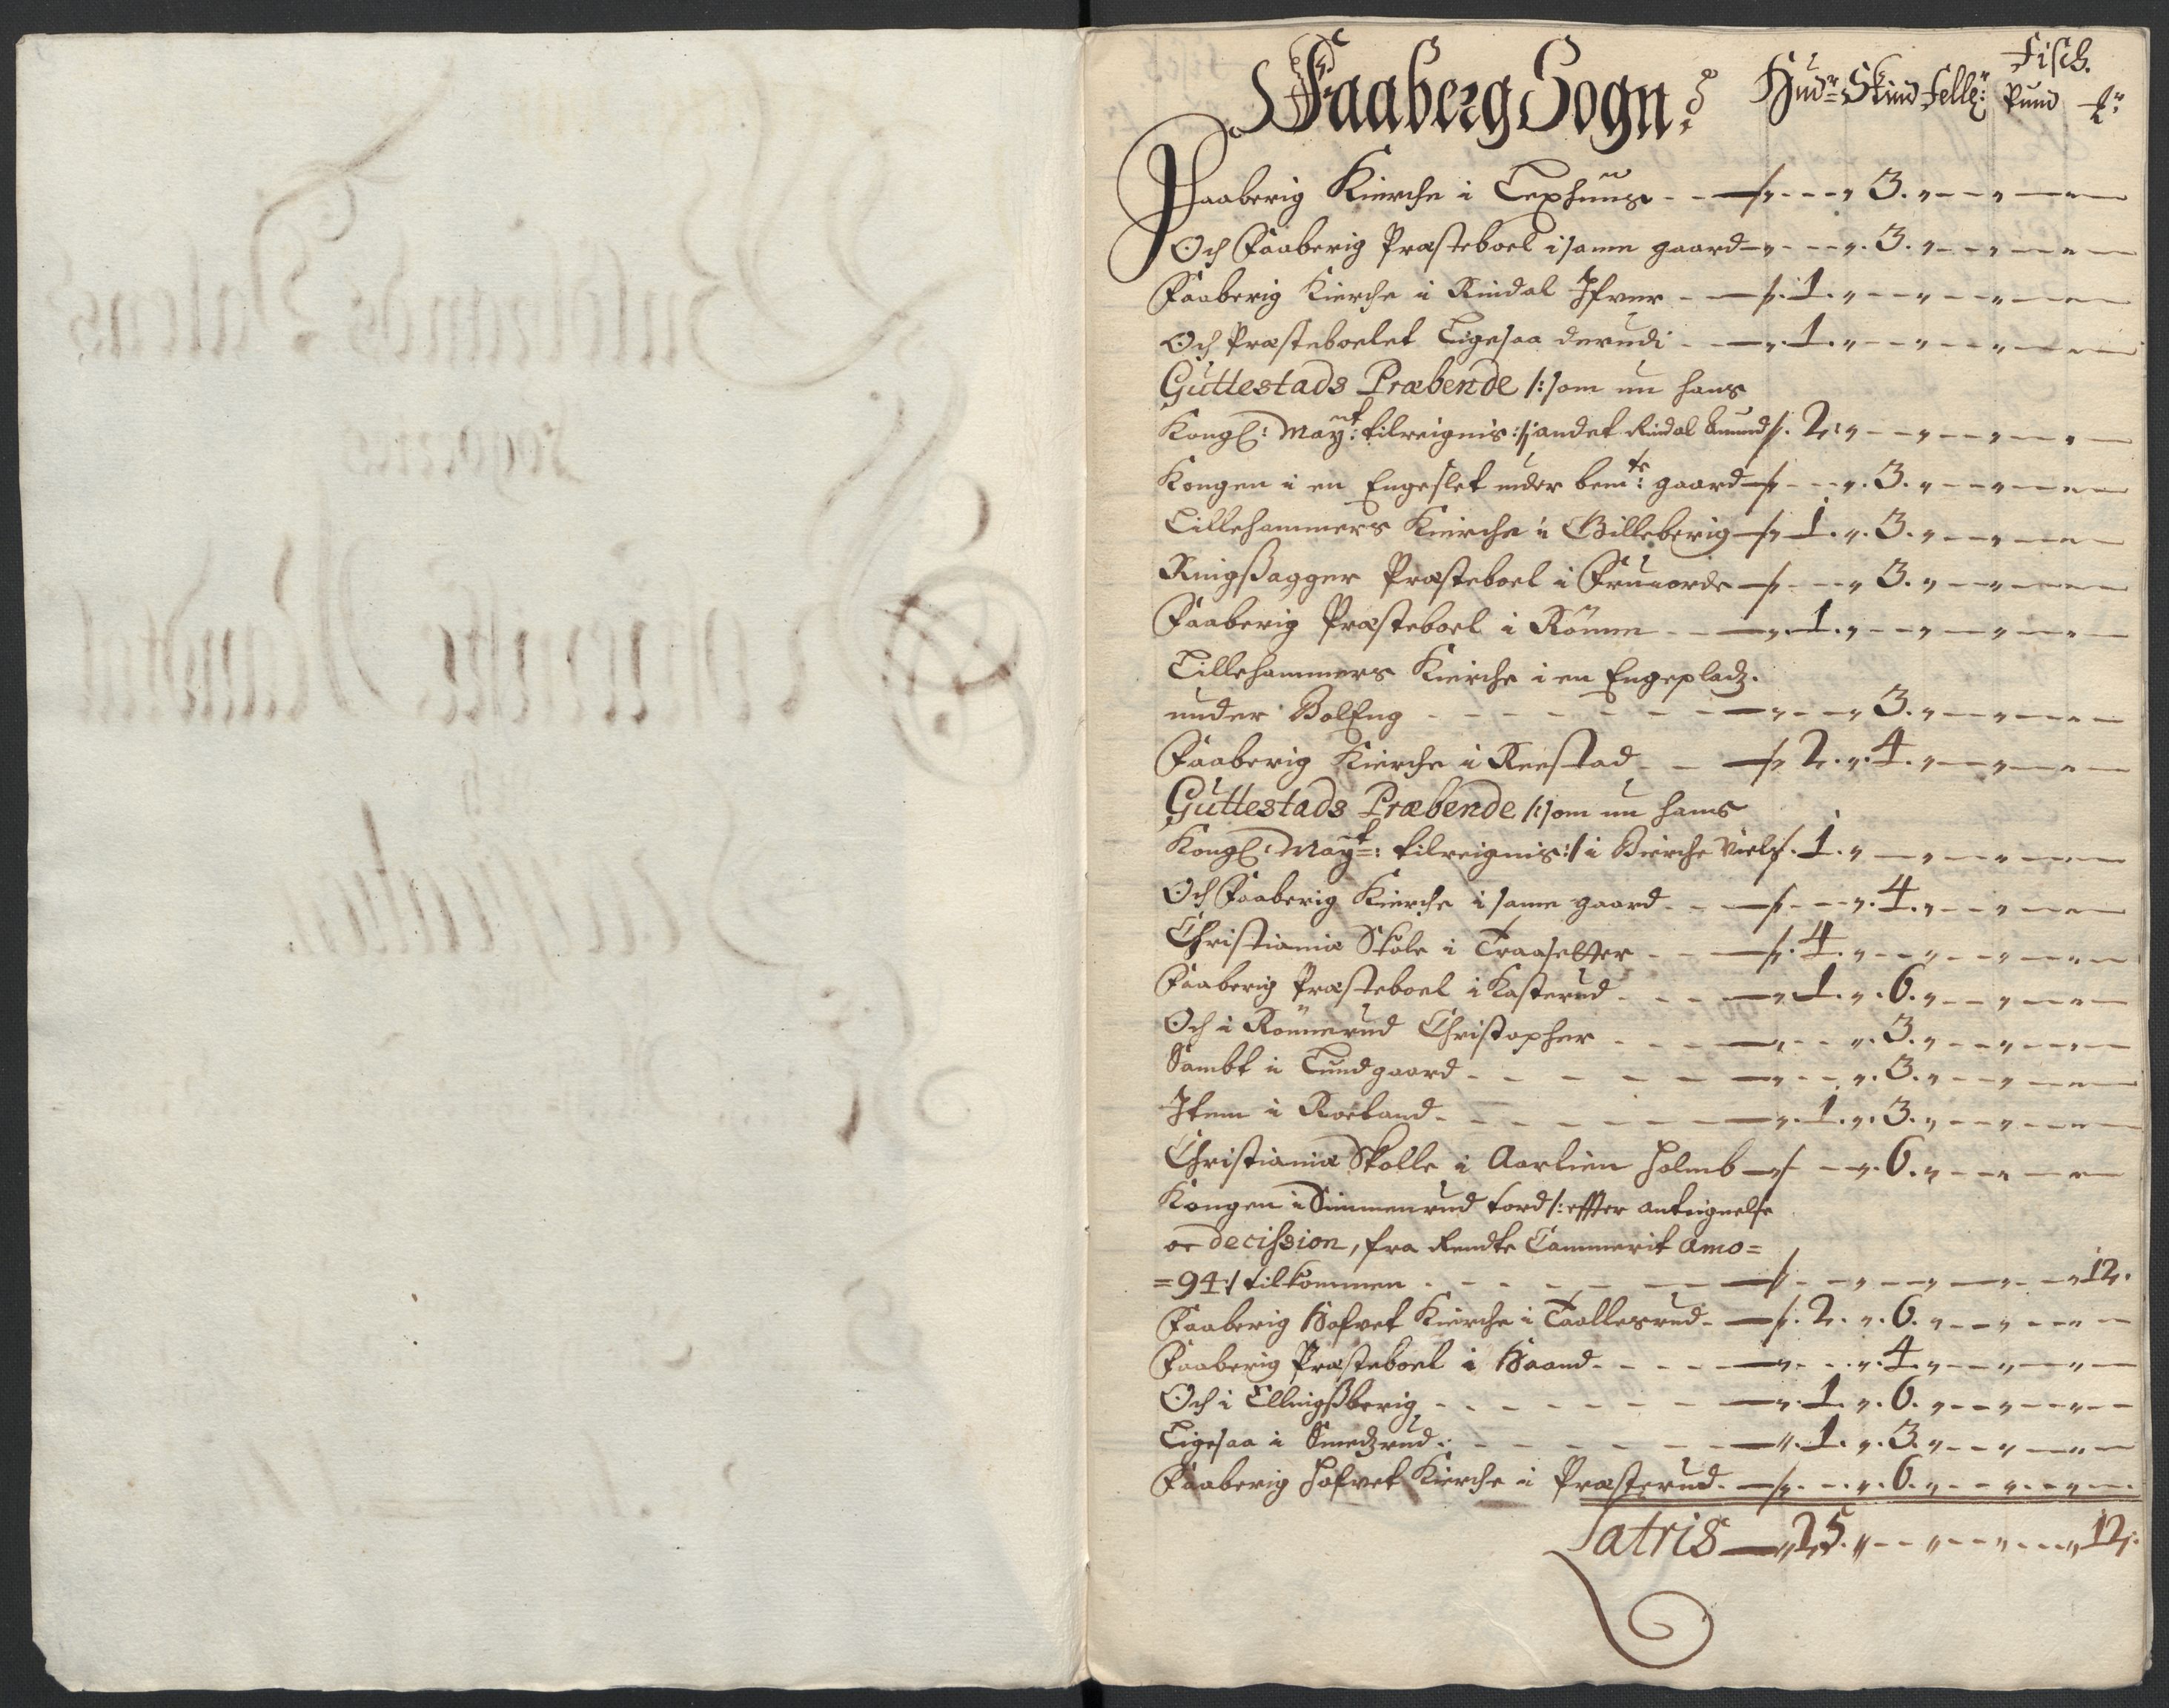 Faaberg Sogn:
Hudr Skind Feller Fisch Pund
Faaberig Kierche i Tephuus - - 3.
Och Faaberig Præsteboel i same gaard - 3.
Faaberig Kierche i Rindal Ifver - 1.
Och Præsteboelet Ligesaa derudi - 1.
Guttestads Præbende /: som nu hans
Kongl: Mayt: tilreignis :/ i andet Rindal Amund 2.
Kongen i en Engeslet under bemte: gaard - 3.
Lillehammers Kierche i Gilleberig - 1. 3.
Ringsagger Præsteboel i - 3.
Faaberig Præsteboel i Rönne - 1.
Lillehammers Kierche i en Engepladz.
under BolEng - 3.
Faaberig Kierche i Reestad - 2. 4.
Guttestads Præbende /: som nu hans
Kongl: Mayt: tilreignis :/ i Bierche 1.
Och Faaberig Kierche i same gaard - 4.
Christiania Skole i Traasetter - 4.
Faaberig Præsteboel i Kasterud - 1. 6.
Och i Rönnerud Christopher - 3.
Sambt i Lundgaard - 3.
Item i Roeland - 1. 3.
Christiania Skolle i Aarlien Holmb - 6.
Kongen i Simmenrud Tord /: effter antegnelse
oc decission, fra Rendte Cammerit Ao
=94 :/ tilkommen - 12.
Faaberig Hofvet Kierche i Taallerud - 2. 6.
Faaberig Præsteboel i Haand - 4.
Och i Ellingsberig - 1. 6.
Ligesaa i Smedzrud - 1. 3.
Faaberig Hofvet Kierche i Præsterud - 6.
Latris - 25. 12.